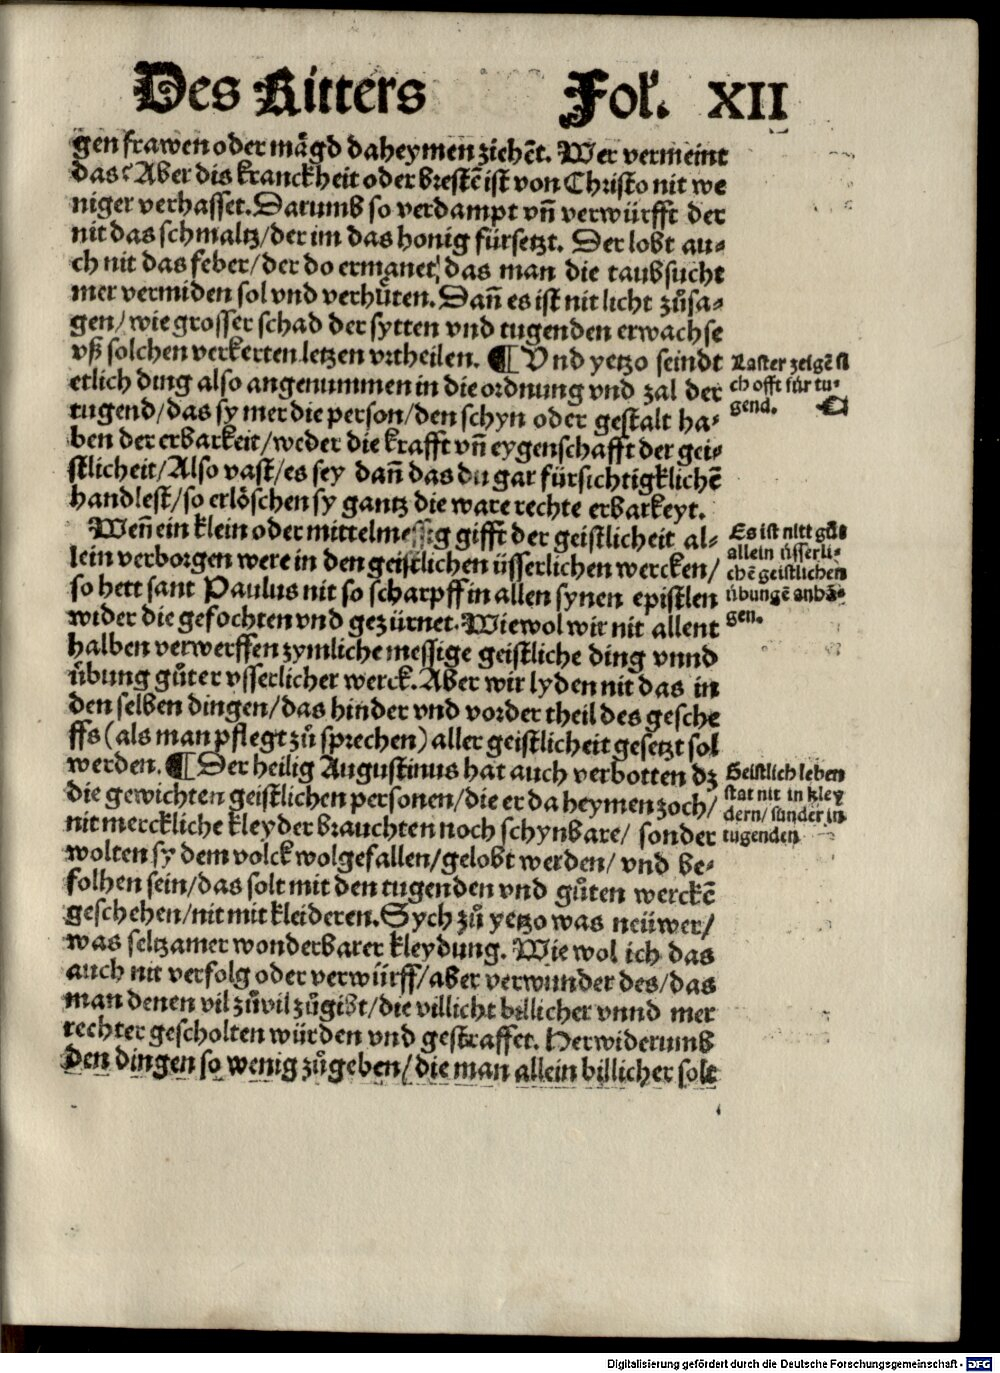 Des Ritters Fol. XII
gen frawen oder mägd daheymen ziehēt. Wer vermeint
das? Aber dis kranckheit oder brestē ist von Christo nit we
niger verhasset. Darumb so verdampt vn̄ verwürfft der
nit das schmaltz/der im das honig fürsetzt. Der lobt au⸗
ch nit das feber/der do ermanet/das man die taubsucht
mer vermiden sol vnd verhuͤten. Dañ es ist nit licht zuͦsa⸗
gen/wie grosser schad der sytten vnd tugenden erwachse
vß solchen verkerten letzen vrtheilen. ¶ Vnd yetzo seindt
etlich ding also angenummen in die ordnung vnd zal der
tugend/das sy mer die person/den schyn oder gestalt ha⸗
ben der erbarkeit/weder die krafft vn̄ eygenschafft der gei⸗
stlicheit/Also vast/es sey dañ das du gar fürsichtigklichē
handlest/so erlöschen sy gantz die ware rechte erbarkeyt.
Weñ ein klein oder mittelmessig gifft der geistlicheit al⸗
lein verborgen were in den geistlichen üsserlichen wercken/
so hett sant Paulus nit so scharpff in allen synen epistlen
wider die gefochten vnd gezürnet. Wiewol wir nit allent
halben verwerffen zymliche messige geistliche ding vnnd
uͤbung guͦter vsserlicher werck. Aber wir lyden nit das in
den selben dingen/das hinder vnd vorder theil des gesche
ffs (als man pflegt zuͦ sprechen) aller geistlicheit gesetzt sol
werden. ¶ Der heilig Augustinus hat auch verbotten dz
die gewichten geistlichen personen/die er da heymen zoch/
nit merckliche kleyder brauchten noch schynbare/ sonder
wolten sy dem volck wolgefallen/gelobt werden/ vnd be⸗
folhen sein/das solt mit den tugenden vnd guͦten werckē
geschehen/nit mit kleideren. Sych zuͦ yetzo was neüwer/
was seltzamer wonderbarer kleydung. Wie wol ich das
auch nit verfolg oder verwürff/aber verwunder des/das
man denen vil zuͦvil zuͦgibt/die villicht billicher vnnd mer
rechter gescholten würden vnd gestraffet. Herwiderumb
den dingen so wenig zuͦgeben/die man allein billicher solt
Laster zeigē si
ch offt für tu⸗
gend.
Es ist nitt guͦt
allein üsserli⸗
chē geistlichen
übungē anhā⸗
gen.
Geistlich leben
stat nit in kley
dern/sunder in
tugenden
Digitalisierung gefördert durch die Deutsche Forschungsgemeinschaft - DFG